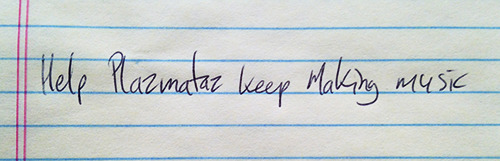 Help Plazmataz keep Making music